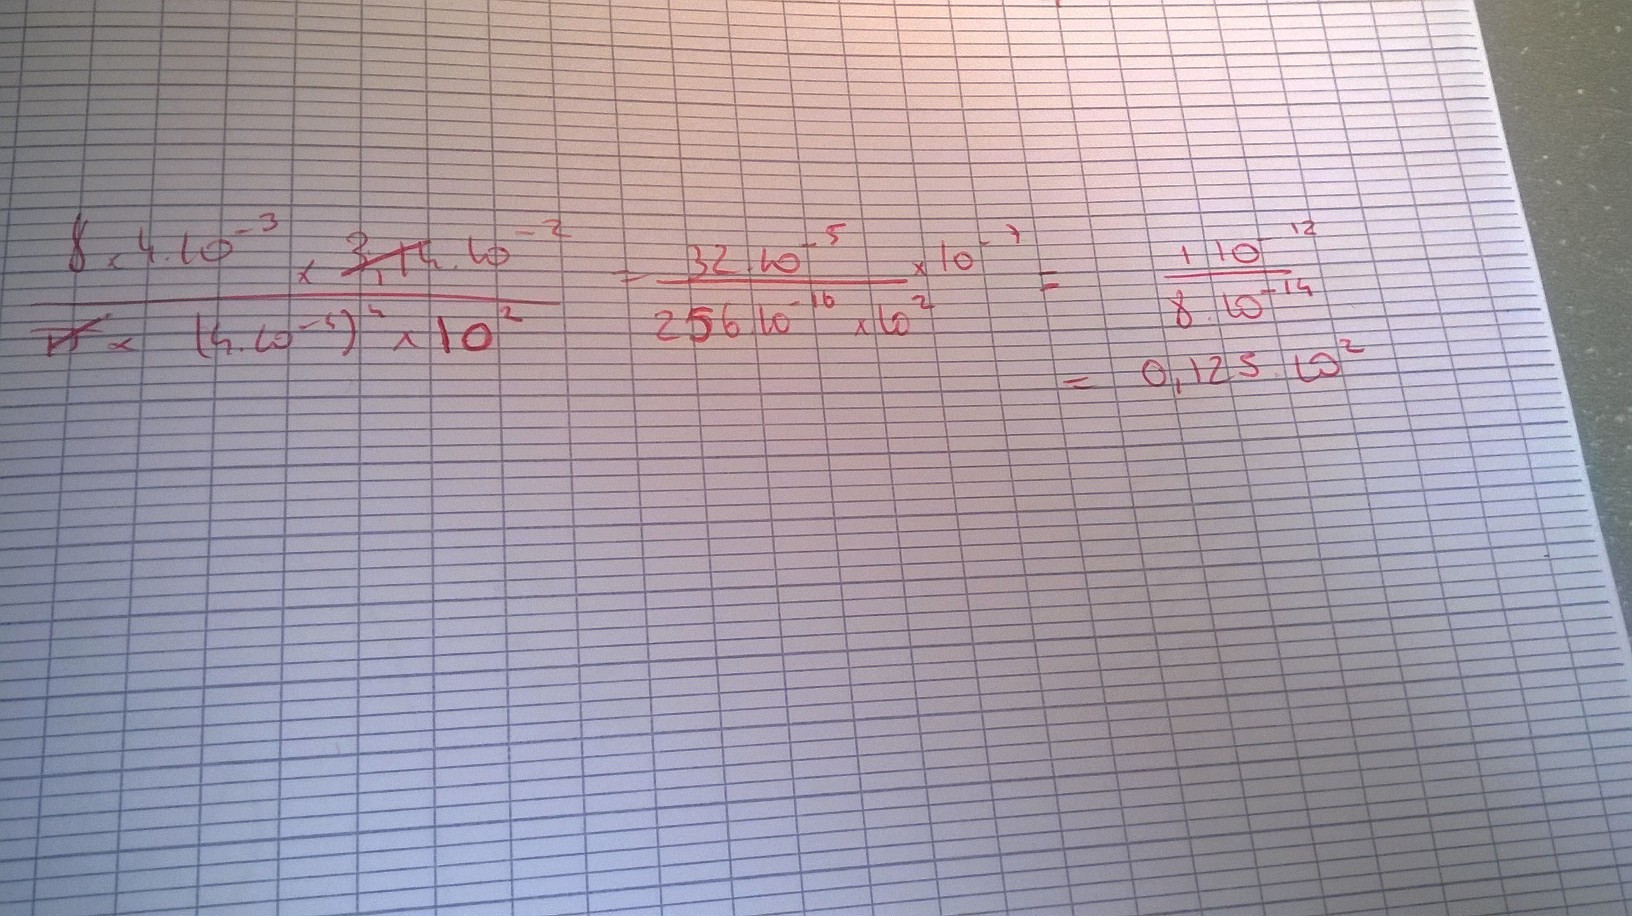 8 × 4.10⁻³ × 3,14.10⁻² / π × (4.10⁻⁴)⁴ × 10² = 32.10⁻⁵ / 256 10⁻¹⁶ × 10² × 10⁻⁷ = 1 10⁻¹² / 8.10⁻¹⁴
= 0,125.10²